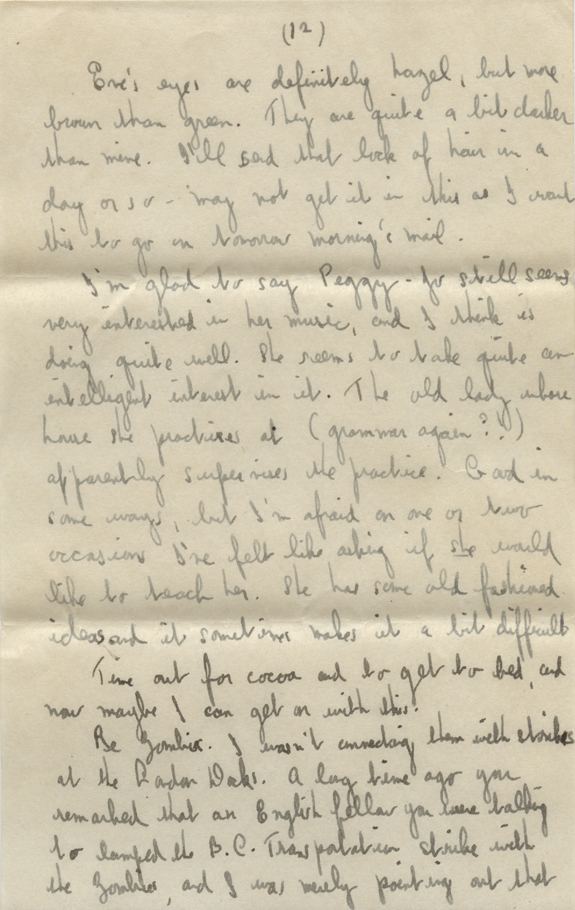 (12)
Eve's eyes are definitely hazel, but more
brown than green. They are quite a bit darker
than mine. I'll send that lock of hair in a
day or so - may not get it in this as I want
this to go in tomorrow morning's mail.
I'm glad to say Peggy-Jo still seems
very interested in her music, and I think is
doing quite well. She seems to take quite an
intelligent interest in it. The old lady whose
house she practises at (grammar again?!)
apparently supervises the practice. Good in
some ways, but I'm afraid on one or two
occasions I've felt like asking if she would
like to teach her. She has some old fashioned
ideas and it sometimes makes it a bit difficult
Time out for cocoa and to get to bed, and
now maybe I can get on with this!
Re Zombies. I wasn't connecting them with strikes
at the London Docks. A long time ago you
remarked that an English fellow you were talking
to lumped the B.C. Transportation strike with
the Zombies, and I was merely pointing out that